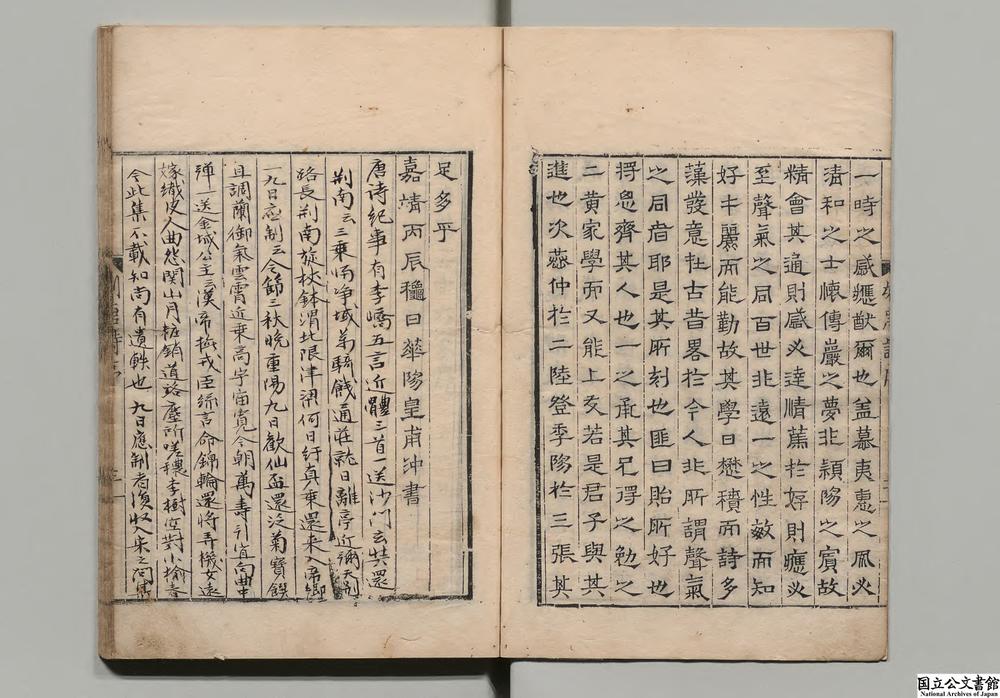 一時之感應猷爾也盖慕夷惠之風必
清和之士懷傅巖之夢非潁陽之賓故
精會其通則感必達情薰於好則應必
至聲氣之同百世非遠一之性敏而知
好丰麗而能勤故其學日懋積而詩多
藻發意在古昔畧於今人非所謂聲氣
之同者耶是其所刻也匪曰貽所好也
將思齊其人也一之承其兄淳之勉之
二黃家學而又能上友若是君子與其
進也次蔡仲於二陸登季陽於三張其
足多乎
嘉靖丙辰穐日華陽皇甫沖書
唐詩紀事有李嶠五言近體三首一送沙門玄奘還
荆南云三乘歸淨域萬騎餞通莊就日離亭近彌天別
路長荆南旋杖鉢渭北限津梁何日紆真果還来入帝鄉
一九日應制云令節三秋晚重陽九日歡仙盃還泛菊寶饌
且調蘭御氣雲霄近乘高宇宙寬今朝萬壽引宜向曲中
彈一送金城公主云漢帝撫戎臣絲言命錦輪還將弄機女遠
嫁織皮人曲怨関山月粧銷道路塵所嗟穠李樹空對小榆春
今此集不載知尚有遺軼也 九日應制者復收入宋之問集
国立公文書館
National Archives of Japan